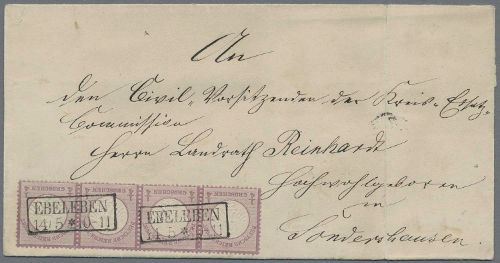 An
den Civil-Vorsitzenden der Kreis-Ersatz-
Commission
Herrn Landrath Reinhardt
Hochwohlgeboren
in
Sondershausen.
EBELEBEN
14 5 * 10-11
EBELEBEN
14 5 * 11